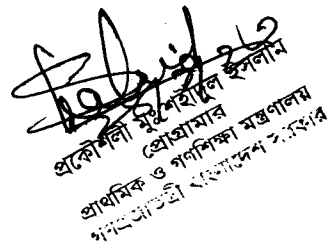 প্রকৌশলী মুঃ শহীদুল ইসলাম
প্রোগ্রামার
প্রাথমিক ও গণশিক্ষা মন্ত্রণালয়
গণপ্রজাতন্ত্রী বাংলাদেশ সরকার